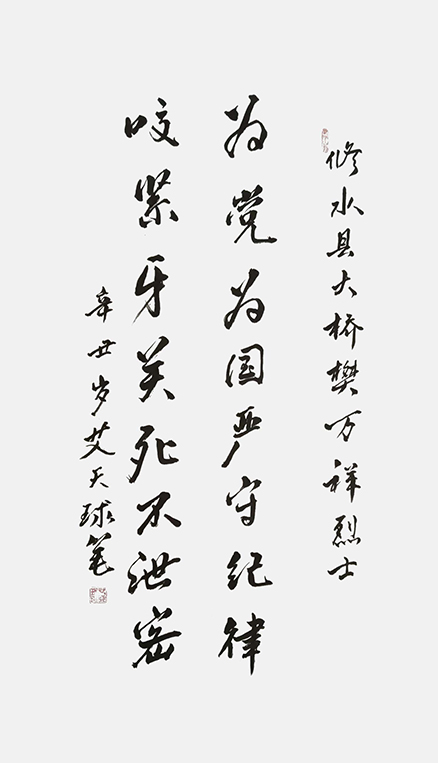 修水县大桥樊万祥烈士
为党为国严守纪律
咬紧牙关死不泄密
辛丑岁艾天球笔